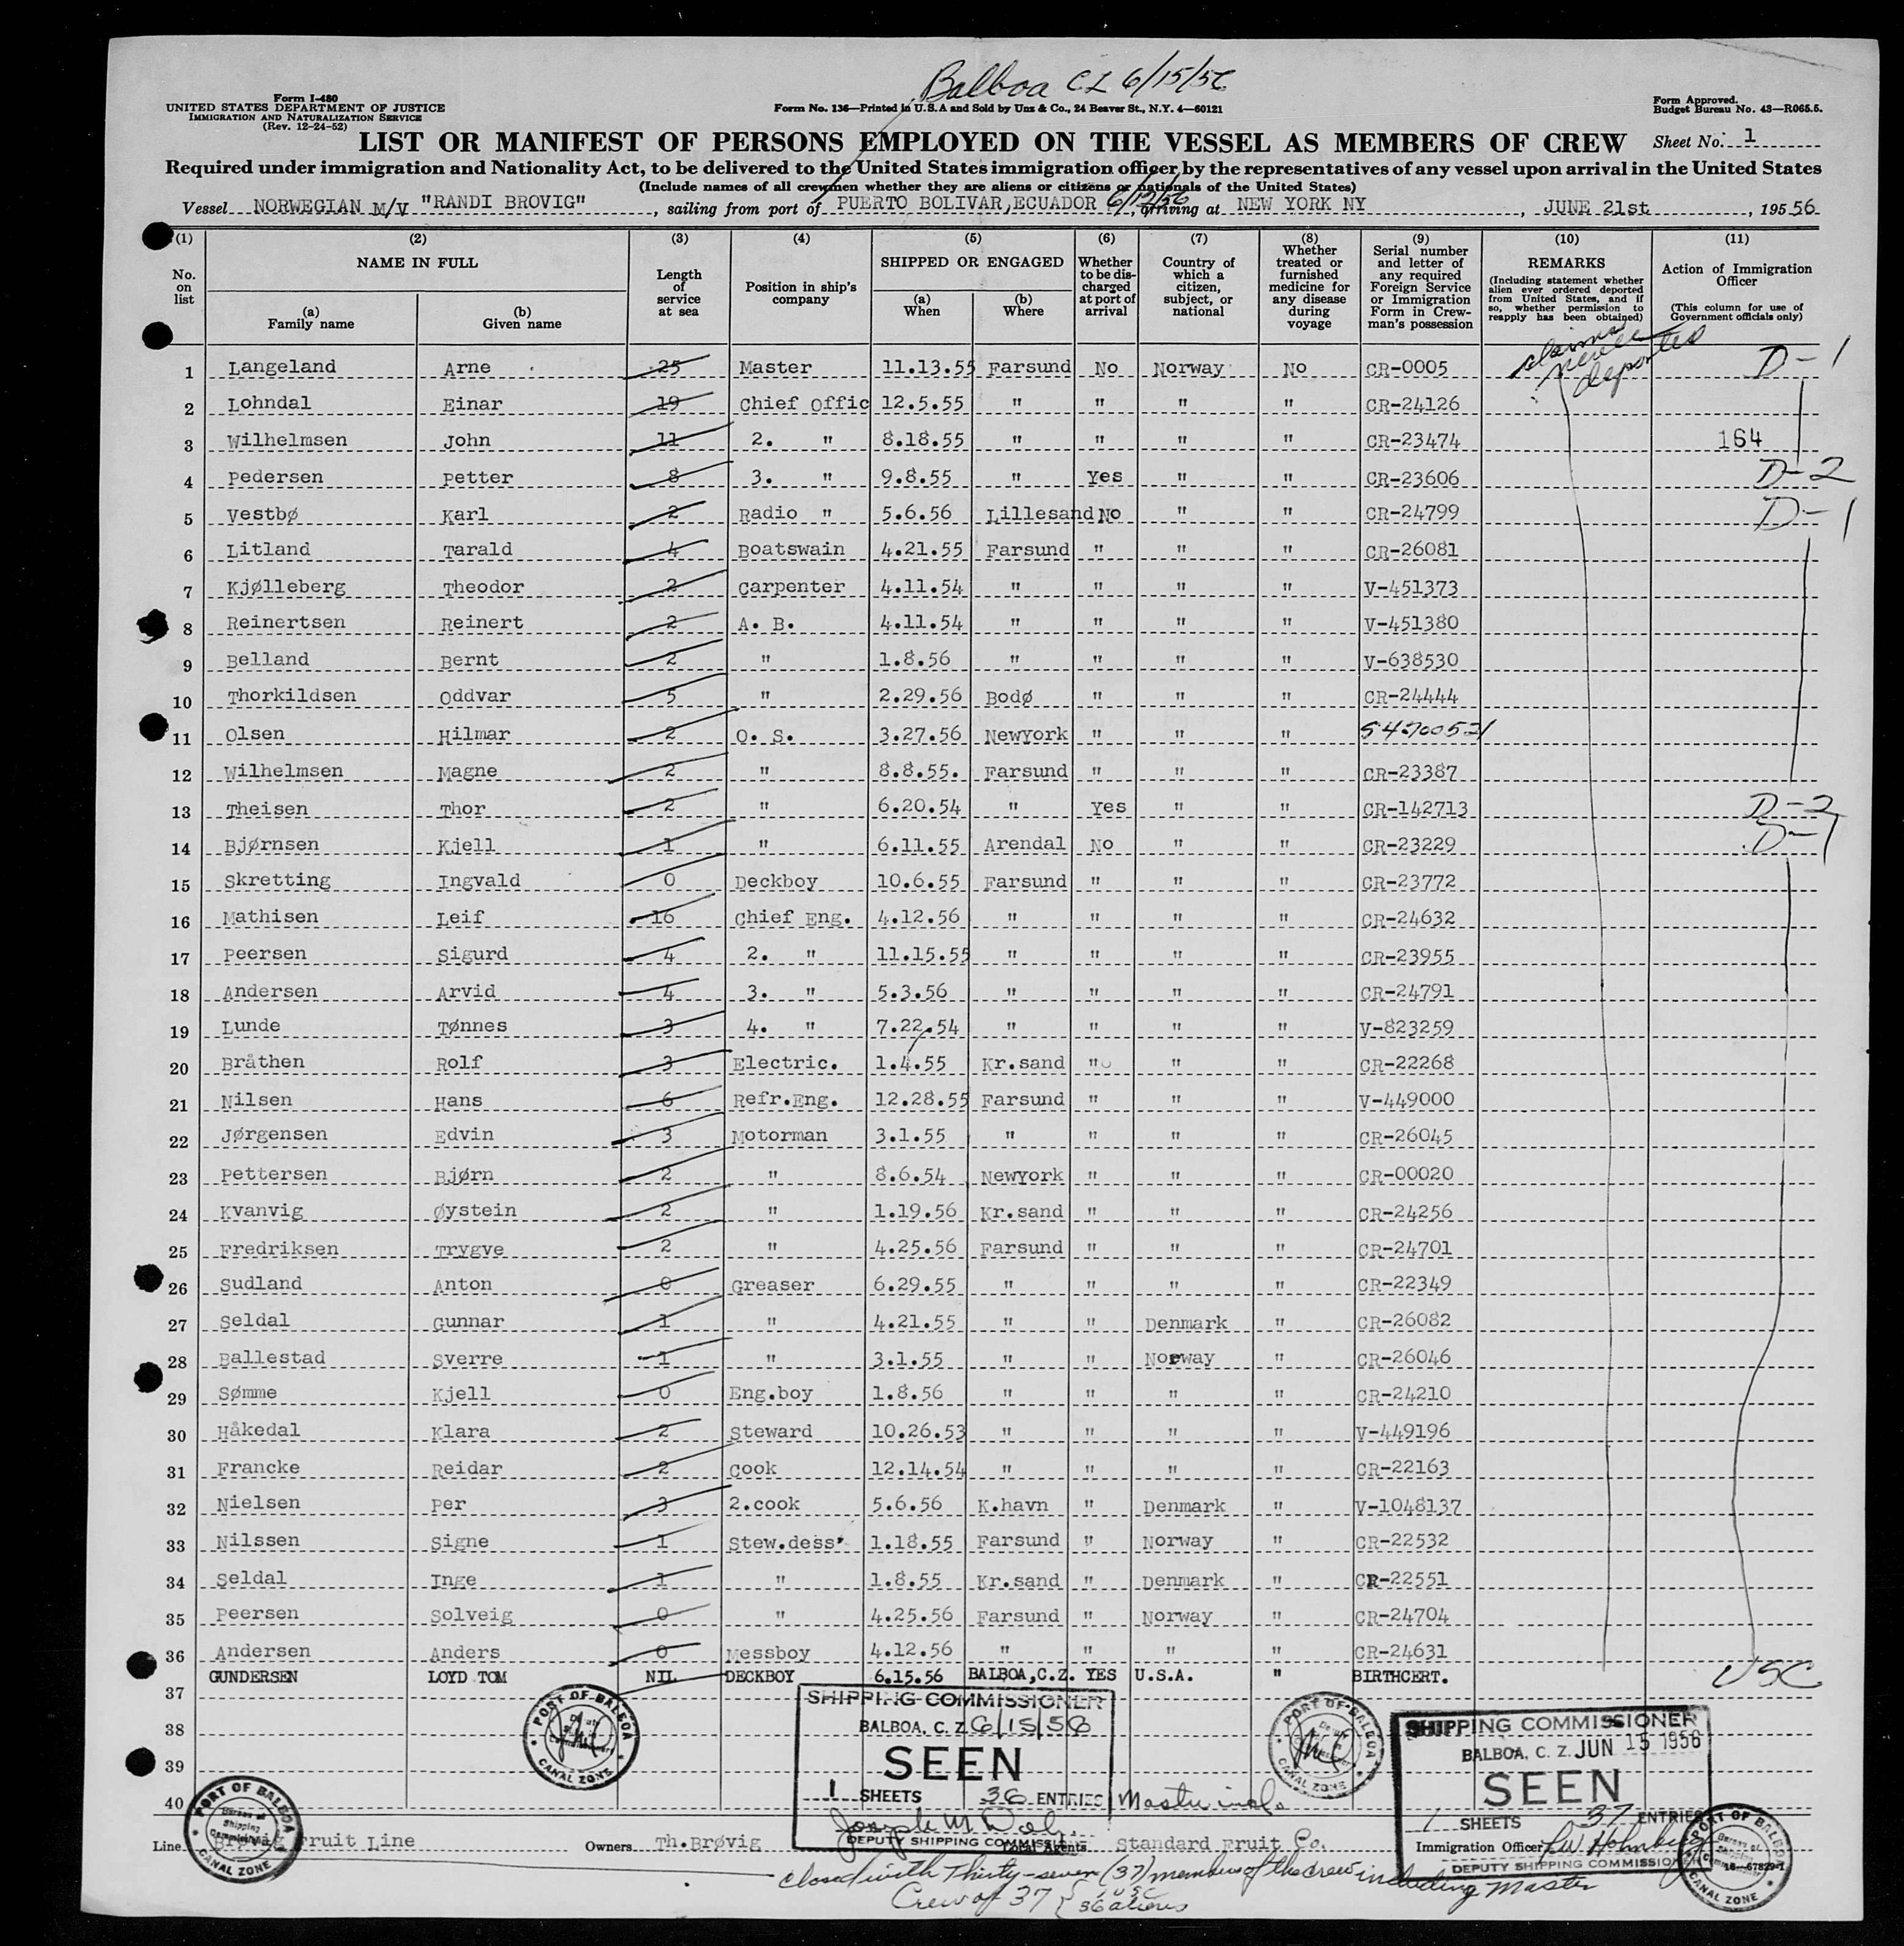 Balboa CZ 6/15/56
Form I-480
UNITED STATES DEPARTMENT OF JUSTICE
IMMIGRATION AND NATURALIZATION SERVICE
(Rev. 12-24-52)
Form No. 136—Printed in U.S.A and Sold by Unz & Co., 24 Beaver St., N.Y. 4—60121
Form Approved.
Budget Bureau No. 43—R065.5.
LIST OR MANIFEST OF PERSONS EMPLOYED ON THE VESSEL AS MEMBERS OF CREW
Sheet No. 1
Required under immigration and Nationality Act, to be delivered to the United States immigration officer by the representatives of any vessel upon arrival in the United States
(Include names of all crewmen whether they are aliens or citizens or nationals of the United States)
Vessel NORWEGIAN M/V "RANDI BROVIG", sailing from port of PUERTO BOLIVAR,ECUADOR 6/12/56, arriving at NEW YORK NY, JUNE 21st, 195 56
(1) (2) (3) (4) (5) (6) (7) (8) (9) (10) (11)
No. on list
NAME IN FULL
(a) Family name
(b) Given name
Length of service at sea
Position in ship's company
SHIPPED OR ENGAGED
(a) When
(b) Where
Whether to be discharged at port of arrival
Country of which a citizen, subject, or national
Whether treated or furnished medicine for any disease during voyage
Serial number and letter of any required Foreign Service or Immigration Form in Crewman's possession
REMARKS
(Including statement whether alien ever ordered deported from United States, and if so, whether permission to reapply has been obtained)
Action of Immigration Officer
(This column for use of Government officials only)
claims never deported
1 Langeland Arne 25 Master 11.13.55 Farsund No Norway No CR-0005 D-1
2 Lohndal Einar 19 Chief Offic 12.5.55 " " " " CR-24126
3 Wilhelmsen John 11 2. " 8.18.55 " " " " CR-23474 164
4 Pedersen Petter 8 3. " 9.8.55 " Yes " " CR-23606 D-2
5 Vestbø Karl 2 Radio " 5.6.56 Lillesand No " " CR-24799 D-1
6 Litland Tarald 4 Boatswain 4.21.55 Farsund " " " CR-26081
7 Kjølleberg Theodor 2 Carpenter 4.11.54 " " " " V-451373
8 Reinertsen Reinert 2 A. B. 4.11.54 " " " " V-451380
9 Belland Bernt 2 " 1.8.56 " " " " V-638530
10 Thorkildsen Oddvar 5 " 2.29.56 Bodø " " " CR-24444
11 Olsen Hilmar 2 O. S. 3.27.56 NewYork " " "
12 Wilhelmsen Magne 2 " 8.8.55. Farsund " " " CR-23387
13 Theisen Thor 2 " 6.20.54 " Yes " " CR-142713 D-2
14 Bjørnsen Kjell 1 " 6.11.55 Arendal No " " CR-23229 D-1
15 Skretting Ingvald 0 Deckboy 10.6.55 Farsund " " " CR-23772
16 Mathisen Leif 16 Chief Eng. 4.12.56 " " " " CR-24632
17 Peersen Sigurd 4 2. " 11.15.55 " " " " CR-23955
18 Andersen Arvid 4 3. " 5.3.56 " " " " CR-24791
19 Lunde Tønnes 3 4. " 7.22.54 " " " " V-823259
20 Bråthen Rolf 3 Electric. 1.4.55 Kr.sand " " " CR-22268
21 Nilsen Hans 6 Refr.Eng. 12.28.55 Farsund " " " V-449000
22 Jørgensen Edvin 3 Motorman 3.1.55 " " " " CR-26045
23 Pettersen Bjørn 2 " 8.6.54 NewYork " " " CR-00020
24 Kvanvig Øystein 2 " 1.19.56 Kr.sand " " " CR-24256
25 Fredriksen Trygve 2 " 4.25.56 Farsund " " " CR-24701
26 Sudland Anton 0 Greaser 6.29.55 " " " " CR-22349
27 Seldal Gunnar 1 " 4.21.55 " " Denmark " CR-26082
28 Ballestad Sverre 1 " 3.1.55 " " Norway " CR-26046
29 Sømme Kjell 0 Eng.boy 1.8.56 " " " " CR-24210
30 Håkedal Klara 2 Steward 10.26.53 " " " " V-449196
31 Francke Reidar 2 Cook 12.14.54 " " " " CR-22163
32 Nielsen Per 3 2.cook 5.6.56 K.havn " Denmark " V-1048137
33 Nilssen Signe 1 Stew.dess' 1.18.55 Farsund " Norway " CR-22532
34 Seldal Inge 1 " 1.8.55 Kr.sand " Denmark " CR-22551
35 Peersen Solveig 0 " 4.25.56 Farsund " Norway " CR-24704
36 Andersen Anders 0 Messboy 4.12.56 " " " " CR-24631
37 GUNDERSEN LOYD TOM NIL DECKBOY 6.15.56 BALBOA,C.Z. YES U.S.A. " BIRTHCERT. USC
38
39
40
PORT OF BALBOA
CANAL ZONE
SHIPPING COMMISSIONER
BALBOA, C. Z. 6/15/56
SEEN
1 SHEETS 36 ENTRIES Master incl.
DEPUTY SHIPPING COMMISSIONER
PORT OF BALBOA
CANAL ZONE
SHIPPING COMMISSIONER
BALBOA, C. Z. JUN 15 1956
SEEN
1 SHEETS 37 ENTRIES
DEPUTY SHIPPING COMMISSIONER
PORT OF BALBOA
Bureau of Shipping Commissioner
CANAL ZONE
PORT OF BALBOA
CANAL ZONE
Line Brøvig Fruit Line Owners Th.Brøvig Local Agents Standard Fruit Co. Immigration Officer
16—67829-1
Closed with Thirty-seven (37) members of the crew including Master
Crew of 37 { 1 USC
36 aliens